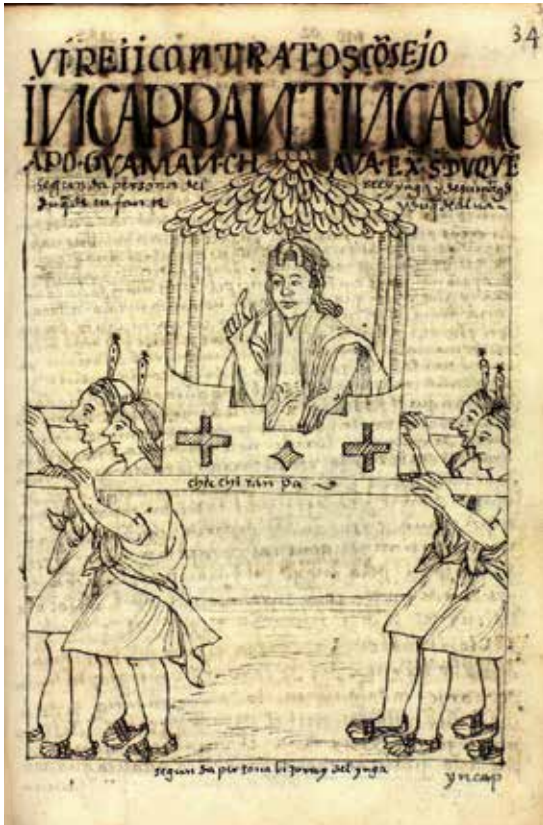 34
VIREI I CONTRATOS CÕSEJO
INCAP RANTI INCAPAC
APO·GVAMAN·CHAVA·EX.S DVQVE
segunda persona del rrey ynga y de su magd
y duq de alua
chicchi ranpa
segunda persona bizorrey del ynga
yncap